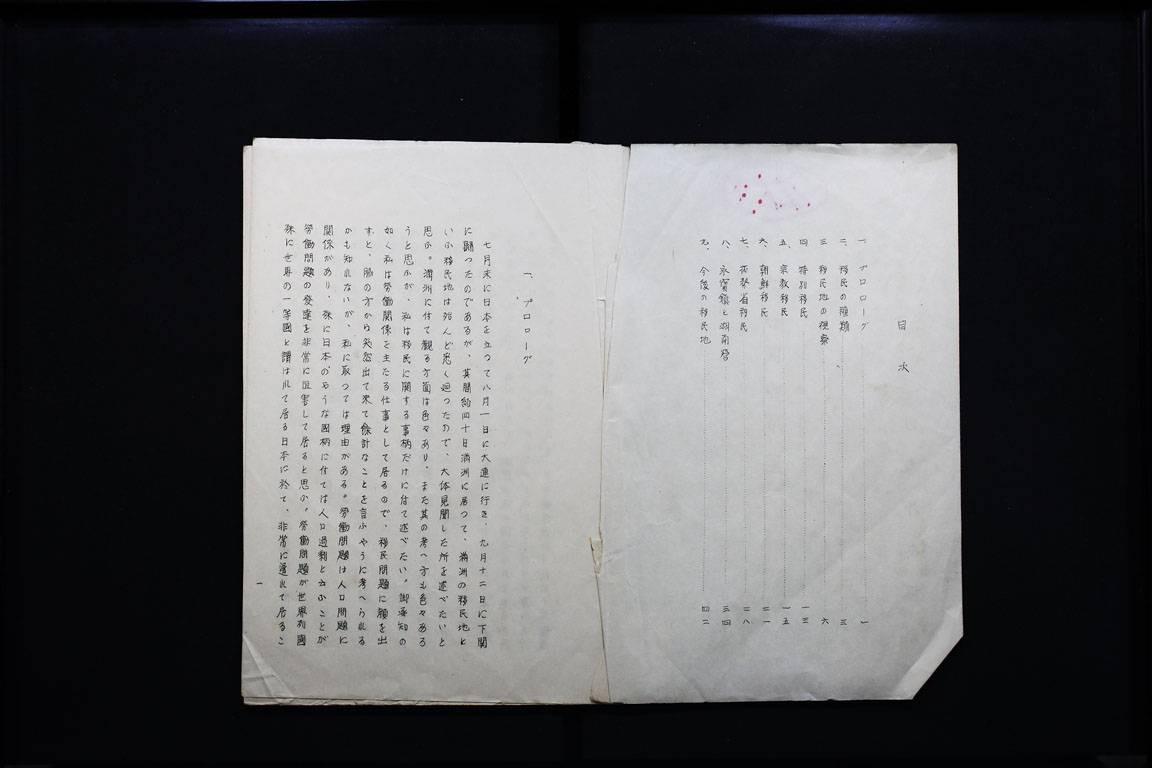 目次
一、プロローグ 一
二、移民の種類 三
三、移民地の視察 六
四、特別移民 一三
五、宗教移民 一五
六、朝鮮移民 二一
七、在勢省移民 二八
八、永豊鎮と湖南営 三四
九、今後の移民地 四二
一、プロローグ
七月末に日本を立つて八月一日に大連に行き、九月十二日に下関
に帰つたのであるが、其間約四十日満洲に居つて、満洲の移民地と
いふ移民地は殆んど悉く廻つたので、大体見聞した所を述べたいと
思ふ。満洲に付て観る方面は色々あり、また其の考へ方も色々ある
うと思ふが、私は移民に関する事柄だけに付て述べたい。御承知の
如く私は労働関係を主たる仕事として居るので、移民問題に顔を出
すと、脇の方から突然出て来て余計なことを言ふやうに考へられる
かも知れないが、私に取つては理由がある。労働問題は人口問題に
関係があり、殊に日本のやうな国柄に付ては人口過剰と云ふことが
労働問題の発達を非常に阻害して居ると思ふ。労働問題が世界列国
殊に世界の一等国と謂はれて居る日本に於て、非常に遅れて居るこ
一